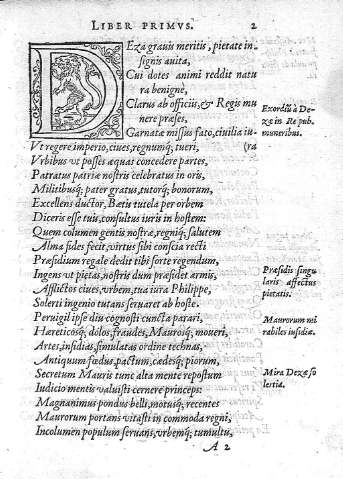 LIBER PRIMVS. 2
DEza grauis meritis, pietate in-
signis auita,
Cui dotes animi reddit natu
ra benignè,
Clarus ab officijs, & Regis mu
nere præses,
Garnatæ missus fato, ciuilia iu-
Vt regere imperio, ciues, regnumq́; tueri, (ra
Vrbibus vt posses æquai concedere partes,
Patratus patriæ nostris celebratus in oris,
Militibusq́; pater gratus, tutorq́; bonorum,
Excellens ductor, Bætis tutela per orbem
Diceris esse tuis, consultus iuris in hostem:
Quem columen gentis nostræ, regniq́; salutem
Alma fides fecit, virtus sibi conscia recti
Præsidium regale dedit tibi forte regendum,
Ingens vt pietas, nostris dum præsidet armis,
Afflictos ciues, vrbem, tua iura Philippe,
Solerti ingenio tutans seruaret ab hoste.
Peruigil ipse diu cognosti cuncta parari,
Hæreticosq́; dolos, fraudes, Mauroṡq́; moueri,
Artes, insidias, simulatas ordine technas,
Antiquum fœdus, pactum, cædesq́; piorum,
Secretum Mauris tunc alta mente repostum
Iudicio mentis valuisti cernere princeps:
Magnanimus pondus belli, motusq́; recentes
Maurorum portans vitasti in commoda regni,
Incolumen populum seruans, vrbemq́; tumultu,
A 2
Exordiũ à De-
zæ in Re pub.
muneribus.
Præsidis singu
laris affectus
pietatis.
Maurorum mi
rabiles insidiæ.
Mira Dezæ so
lertia.